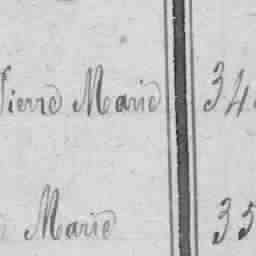 Pierre Marie 34
Marie 35